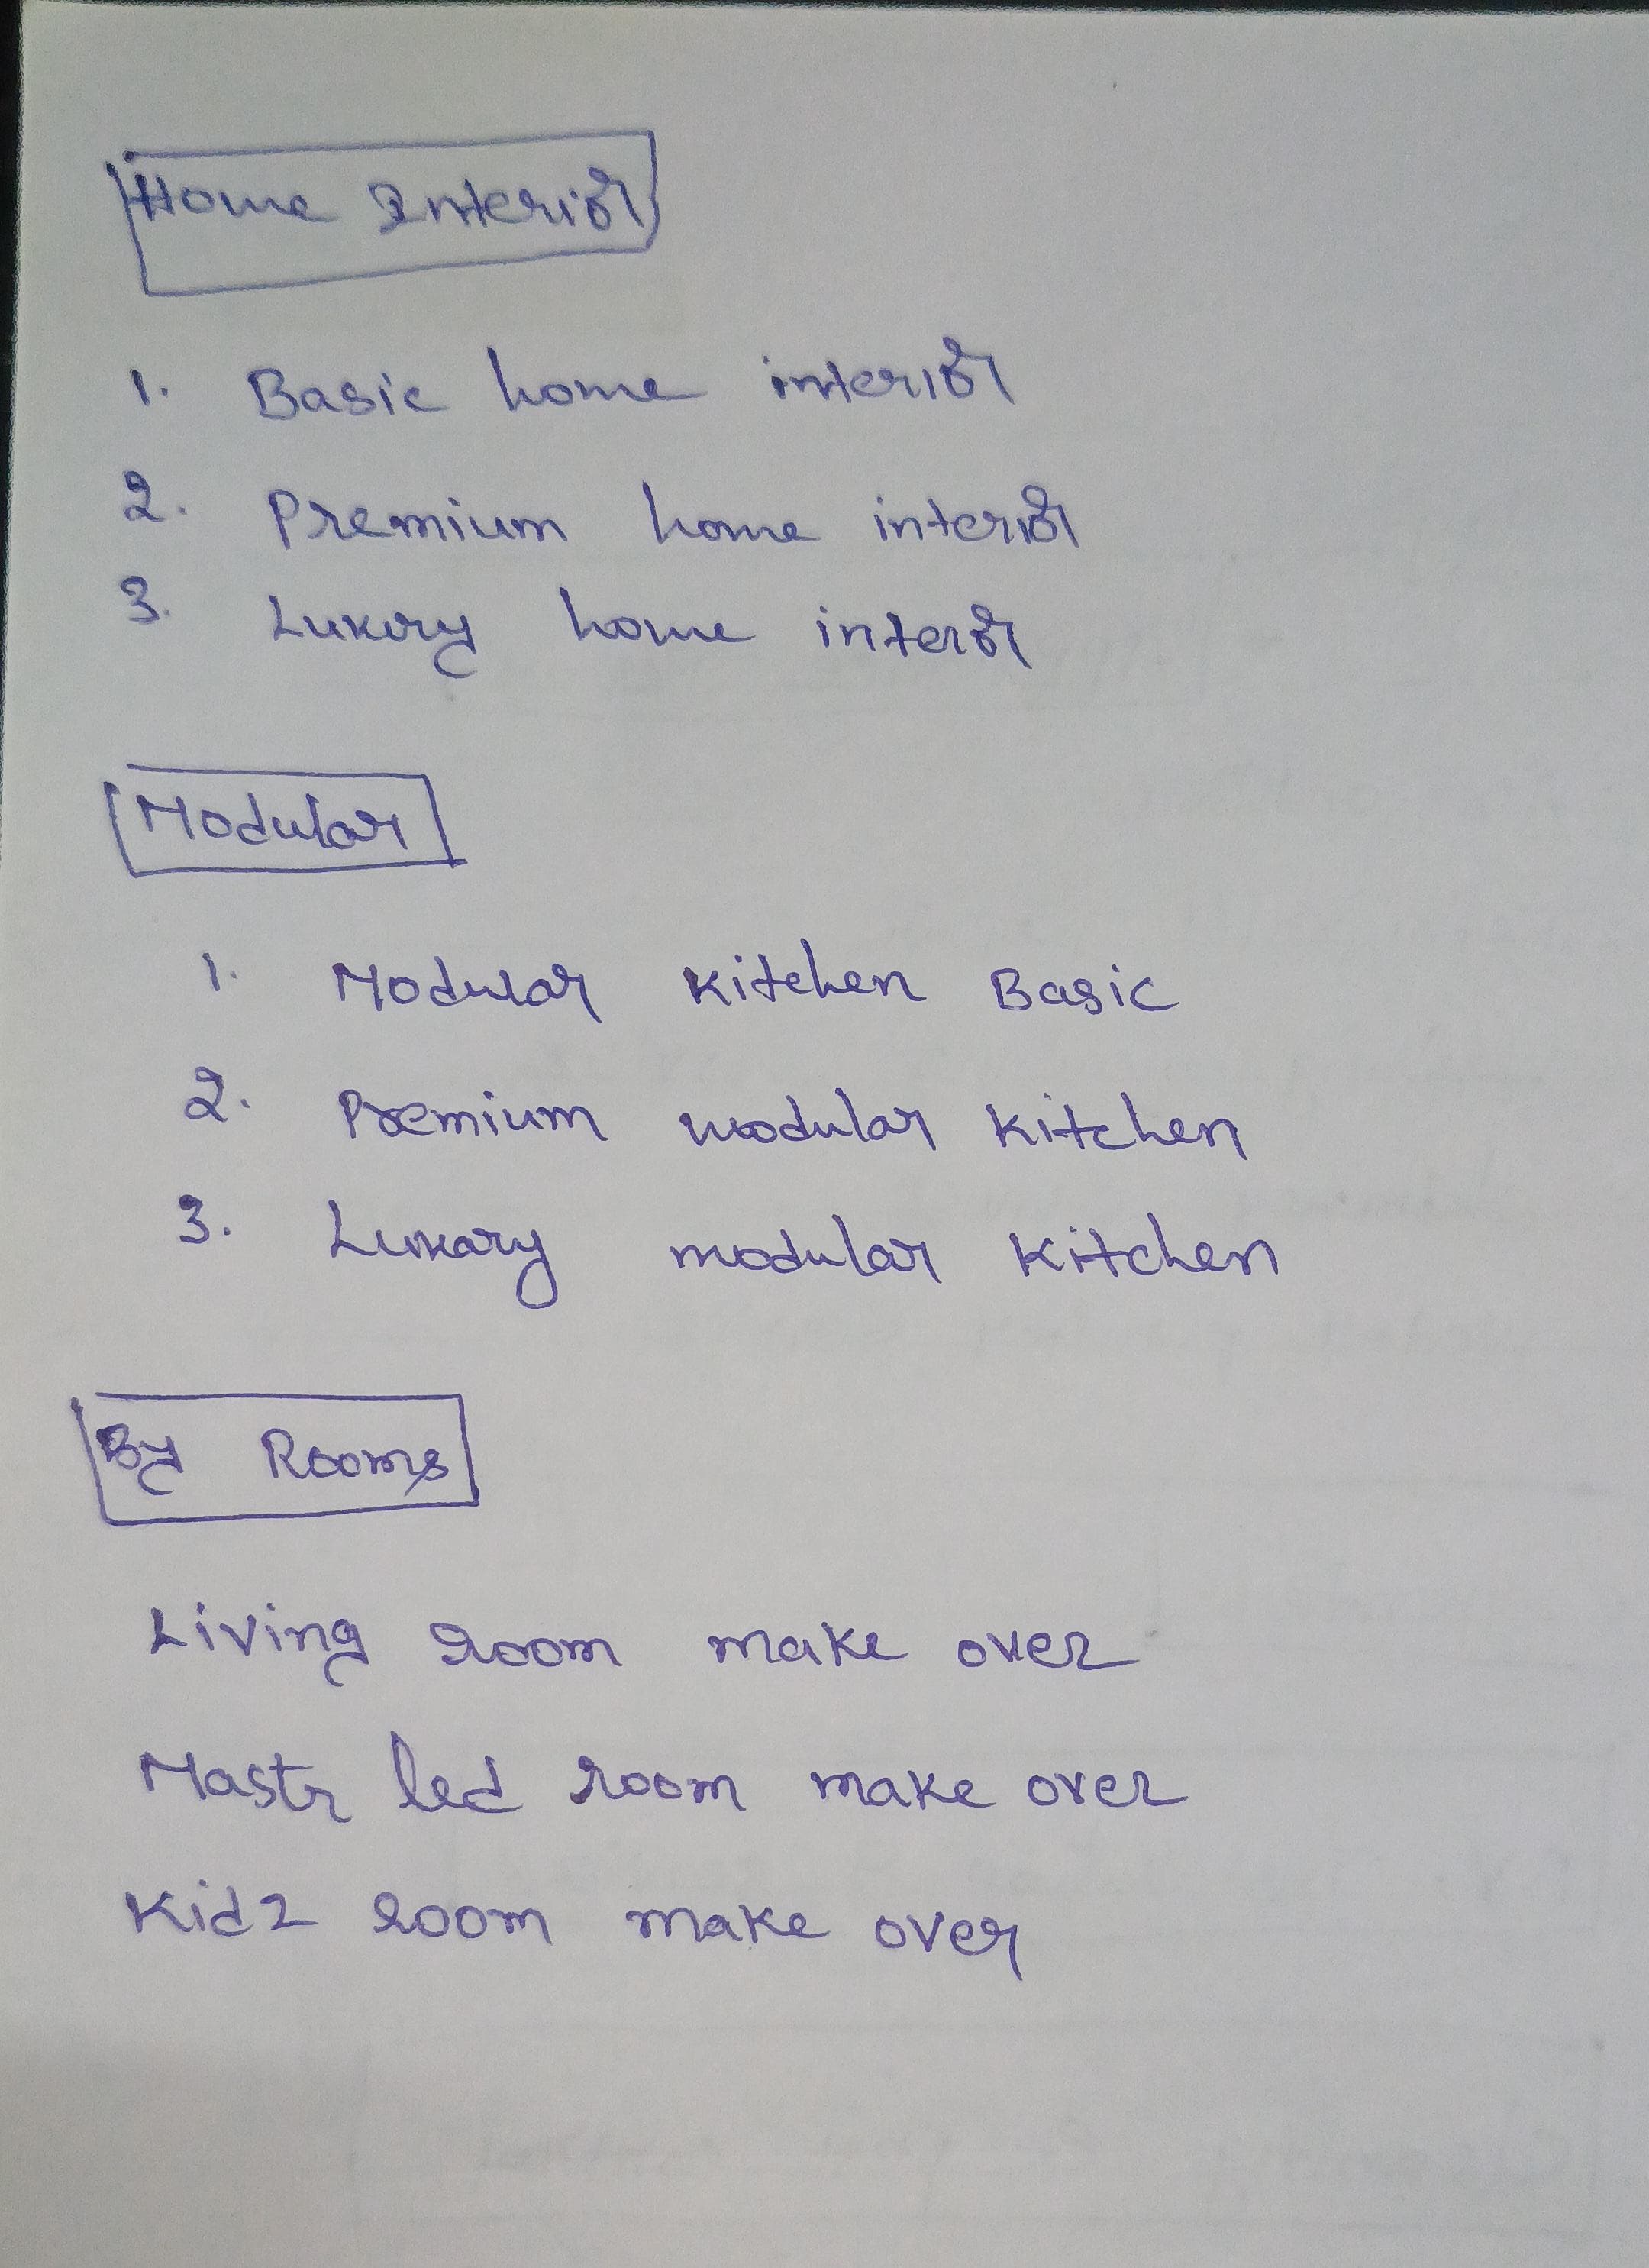 Home Interior
1. Basic home interior
2. Premium home interior
3. Luxury home interor
Modular
1. Modular Kitchen Basic
2. Premium modular Kitchen
3. Luxary modular Kitchen
By Rooms
Living room make over
Mastr bed room make over
Kidz room make over